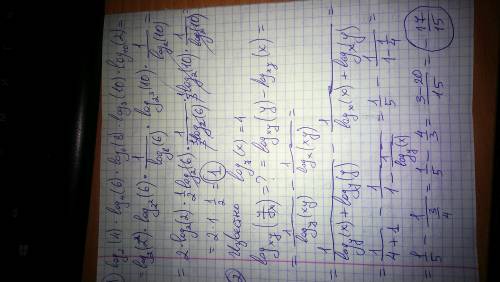 1) log₂(4) · log₄(6) · log₆(8) · log₈(10) · log₁₀(2) =
= log₂(2²) · log₂²(6) · 1/log₈(6) · log₂³(10) · 1/log₂(10) =
= 2 · log₂(2) · 1/2 log₂(6) · 1/(1/3 log₂(6)) · 1/3 log₂(10) · 1/log₂(10)
= 2 · 1 · 1/2 = 1
2) Известно logᵧ(x) = 4
logₓᵧ(y/x) = ? = logₓᵧ(y) - logₓᵧ(x) =
= 1/logᵧ(xy) - 1/logₓ(xy) =
= 1/(logᵧ(x) + logᵧ(y)) - 1/(logₓ(x) + logₓ(y)) =
= 1/(4+1) - 1/(1 - 1/logᵧ(x)) = 1/5 - 1/(1 - 1/4) =
= 1/5 - 1/(3/4) = 1/5 - 4/3 = (3-20)/15 = -17/15